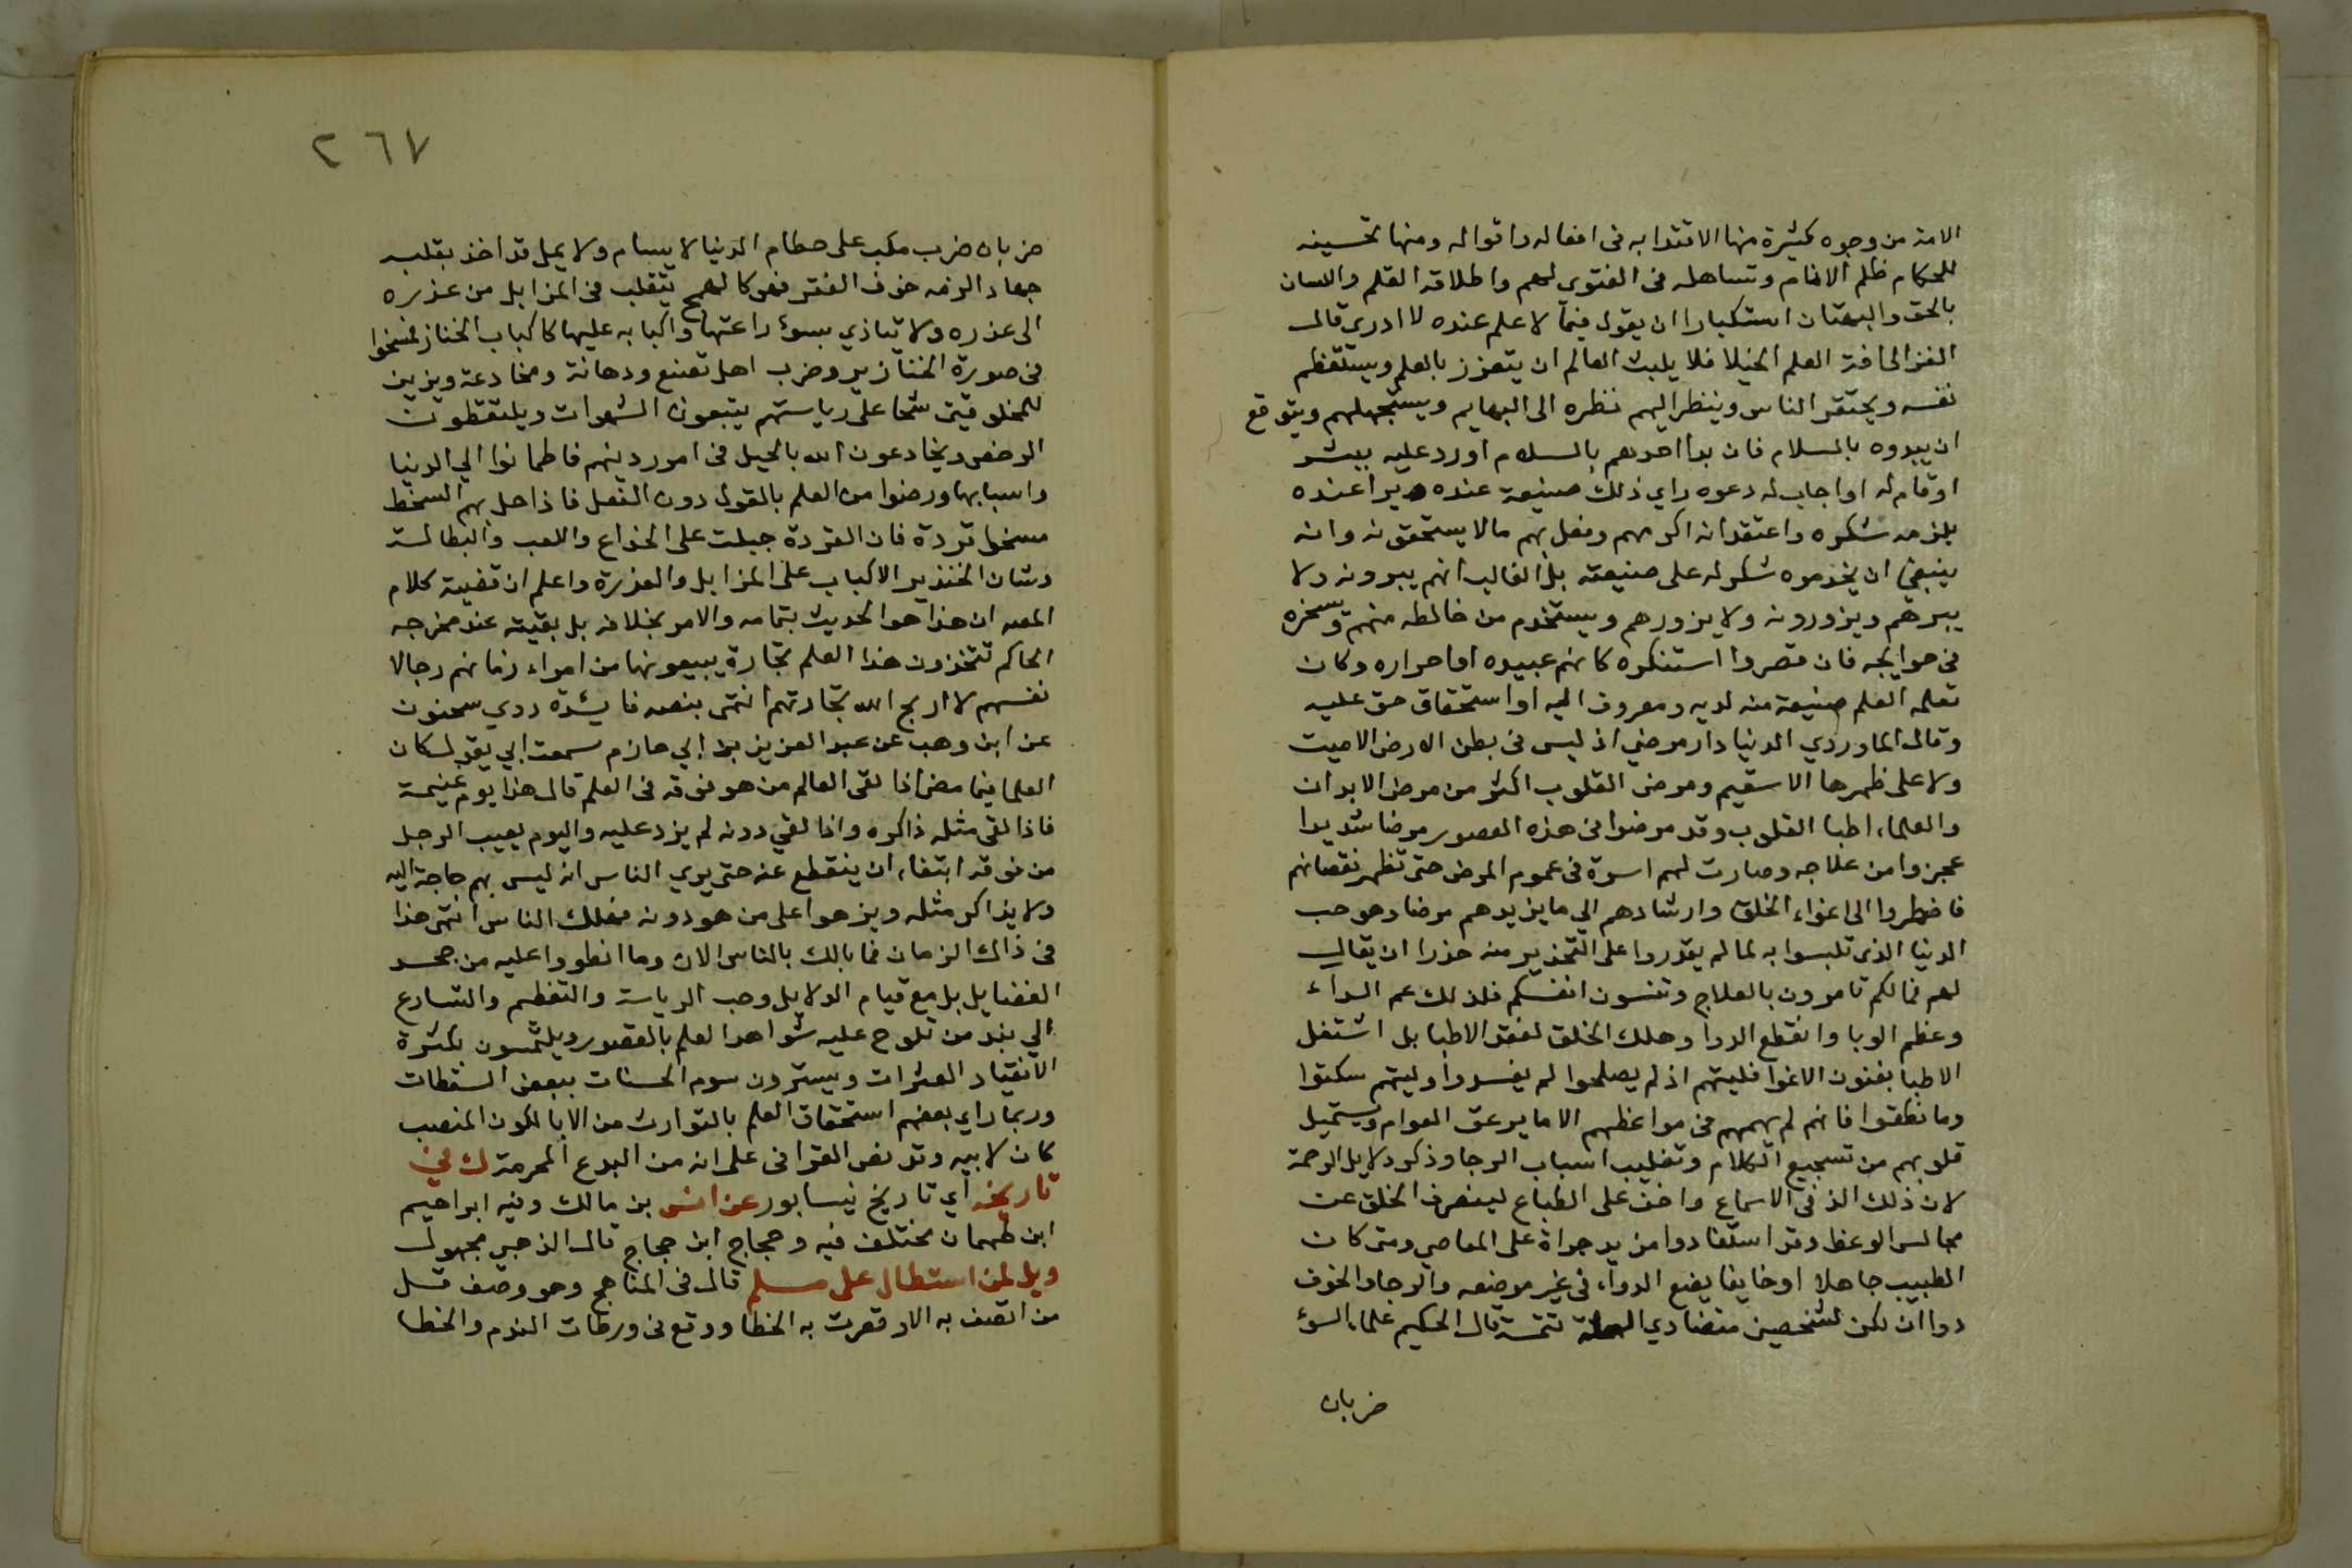 الامة من وجوه كثيرة منها الاقتدا به فى افعاله واقواله ومنها تحسينه
للحكام ظلم الانام وتساهله فى الفتوى لهم واطلاقه القلم واللسان
بالحق والبهتان استكبارا ان يقول فيما لا علم عنده لا ادرى قال
الغزالى افة العلم الخيلا فلا يلبث العالم ان يتعزز بالعلم ويستعظم
نفسه ويحتقر الناس وينظر اليهم نظره الى البهايم ويستجهلهم ويتوقع
ان يبدوه بالسلام فان بدا احدهم بالسلام اورد عليه ببشر
او قام له او اجاب له دعوه راي ذلك صنيعة عنده ويدا عنده
يلزمه شكره واعتقد انه اكرمهم وفعل بهم مالا يستحقونه وانه
ينبغى ان يخدموه شكرا له على صنيعته بل الغالب انهم يبرونه ولا
يبرهم ويزورونه ولا يزورهم ويستخدم من خالطه منهم ويسخره
فى حوايجه فان قصروا استنكره كانهم عبيده او اجراوه وكان
تعلمه العلم صنيعة منه لديه ومعروف اليه او استحقاق حق عليه
وقال الماوردي الدنيا دار مرضي اذ ليس فى بطن الارض الا ميت
ولا على ظهرها الا سقيم ومرض القلوب اكثر من مرض الابدان
والعلماء اطبا القلوب وقد مرضوا فى هذه العصور مرضا شديدا
عجزوا من علاجه وصارت لهم اسوة فى عموم المرض حتى تظهر نقصانهم
فاضطروا الى اغواء الخلق وارشادهم الى ما يزيدهم مرضا وهو حب
الدنيا الذى تلبسوا به لما لم يقدروا على التحذير منه حذرا ان يقال
لهم فما لكم تامرون بالعلاج وتنسون انفسكم فلذلك عم الداء
وعظم الوبا وانقطع الدوا وهلك الخلق لفقد الاطبا بل اشتغل
الاطبا بفنون الاغوا فليتهم اذ لم يصلحوا لم يفسدوا وليتهم سكتوا
وما نطقوا فانهم لم يهمهم فى مواعظهم الا ما يرعق العوام ويستميل
قلوبهم من تسجيع الكلام وتغليب اسباب الرجا وذكر دلايل الرحمة
لان ذلك الذ فى الاسماع واخف على الطباع لينصرف الخلق عن
مجالس الوعظ وقد استفادوا مزيد جراة على المعاصي ومتى كان
الطبيب جاهلا او خاينا يضع الدواء فى غير موضعه والرجا والخوف
دواان لكن لشخصين متضادي العلة تتمة قال الحكيم علماء السوء
ضربان
٢٦٧
ضربان ضرب مكب على حطام الدنيا لا يسام ولا يمل قد اخذ بقلبه
حبها والزمه خوف الفقر فهو كالهمج يتقلب فى المزابل من عذره
الى عذره ولا يتاذي بسوء رائحتها واكبابه عليها كاكباب الخنازير فمسخوا
فى صورة الخنازير وضرب اهل تصنع ودهانة ومخادعة وتزين
للمخلوقين شحا على رياستهم يتبعون الشهوات ويلتقطون
الرخص ويخادعون الله بالحيل فى امور دينهم فاطمانوا الي الدنيا
واسبابها ورضوا من العلم بالقول دون الفعل فاذا حل بهم السخط
مسخوا قردة فان القردة جبلت على الخداع واللعب والبطالة
وشان الخنزير الاكباب على المزابل والعذرة واعلم ان قضية كلام
المصه ان هذا هو الحديث بتمامه والامر بخلافه بل بقيته عند مخرجه
الحاكم تتخذون هذا العلم تجارة يبيعونها من امراء زمانهم رجالا
نفسهم لا اربح الله تجارتهم انتهى بنصه فائدة روي سحنون
عن ابن وهب عن عبد العزيز بن ابي حازم سمعت ابي يقول كان
العلما فيما مضى اذا لقى العالم من هو فوقه فى العلم قال هذا يوم غنيمة
فاذا لقى مثله ذاكره واذا لقي دونه لم يزد عليه واليوم يعيب الرجل
من فوقه ابتغاء ان ينقطع عنه حتى يري الناس انه ليس بهم حاجة اليه
ولا يذاكر مثله ويزهوا على من هو دونه فهلك الناس انتهى هذا
فى ذاك الزمان فما بالك بالناس الان وما انطووا عليه من جحد
الفضايل بل مع قيام الدلايل وحب الرياسة والتعظم والتسارع
الي نبذ من تلوح عليه شواهد العلم بالقصور ويلتمسون بكثرة
الانتقاد العثرات ويسترون سوم الحسنات ببعض السقطات
وربما راي بعضهم استحقاق العلم بالتوارث من الابا لكون المنصب
كان لابيه وقد نص القرافى على انه من البدع المحرمة ك في
تاريخه اي تاريخ نيسابور عن انس بن مالك وفيه ابراهيم
ابن طهمان مختلف فيه وحجاج ابن حجاج قال الذهبي مجهول
ويل لمن استطال على مسلم قال فى المناهج وهو وصف قل
من اتصف به الا وقعرت به الخطا ووقع فى ورطات الندم والخطا